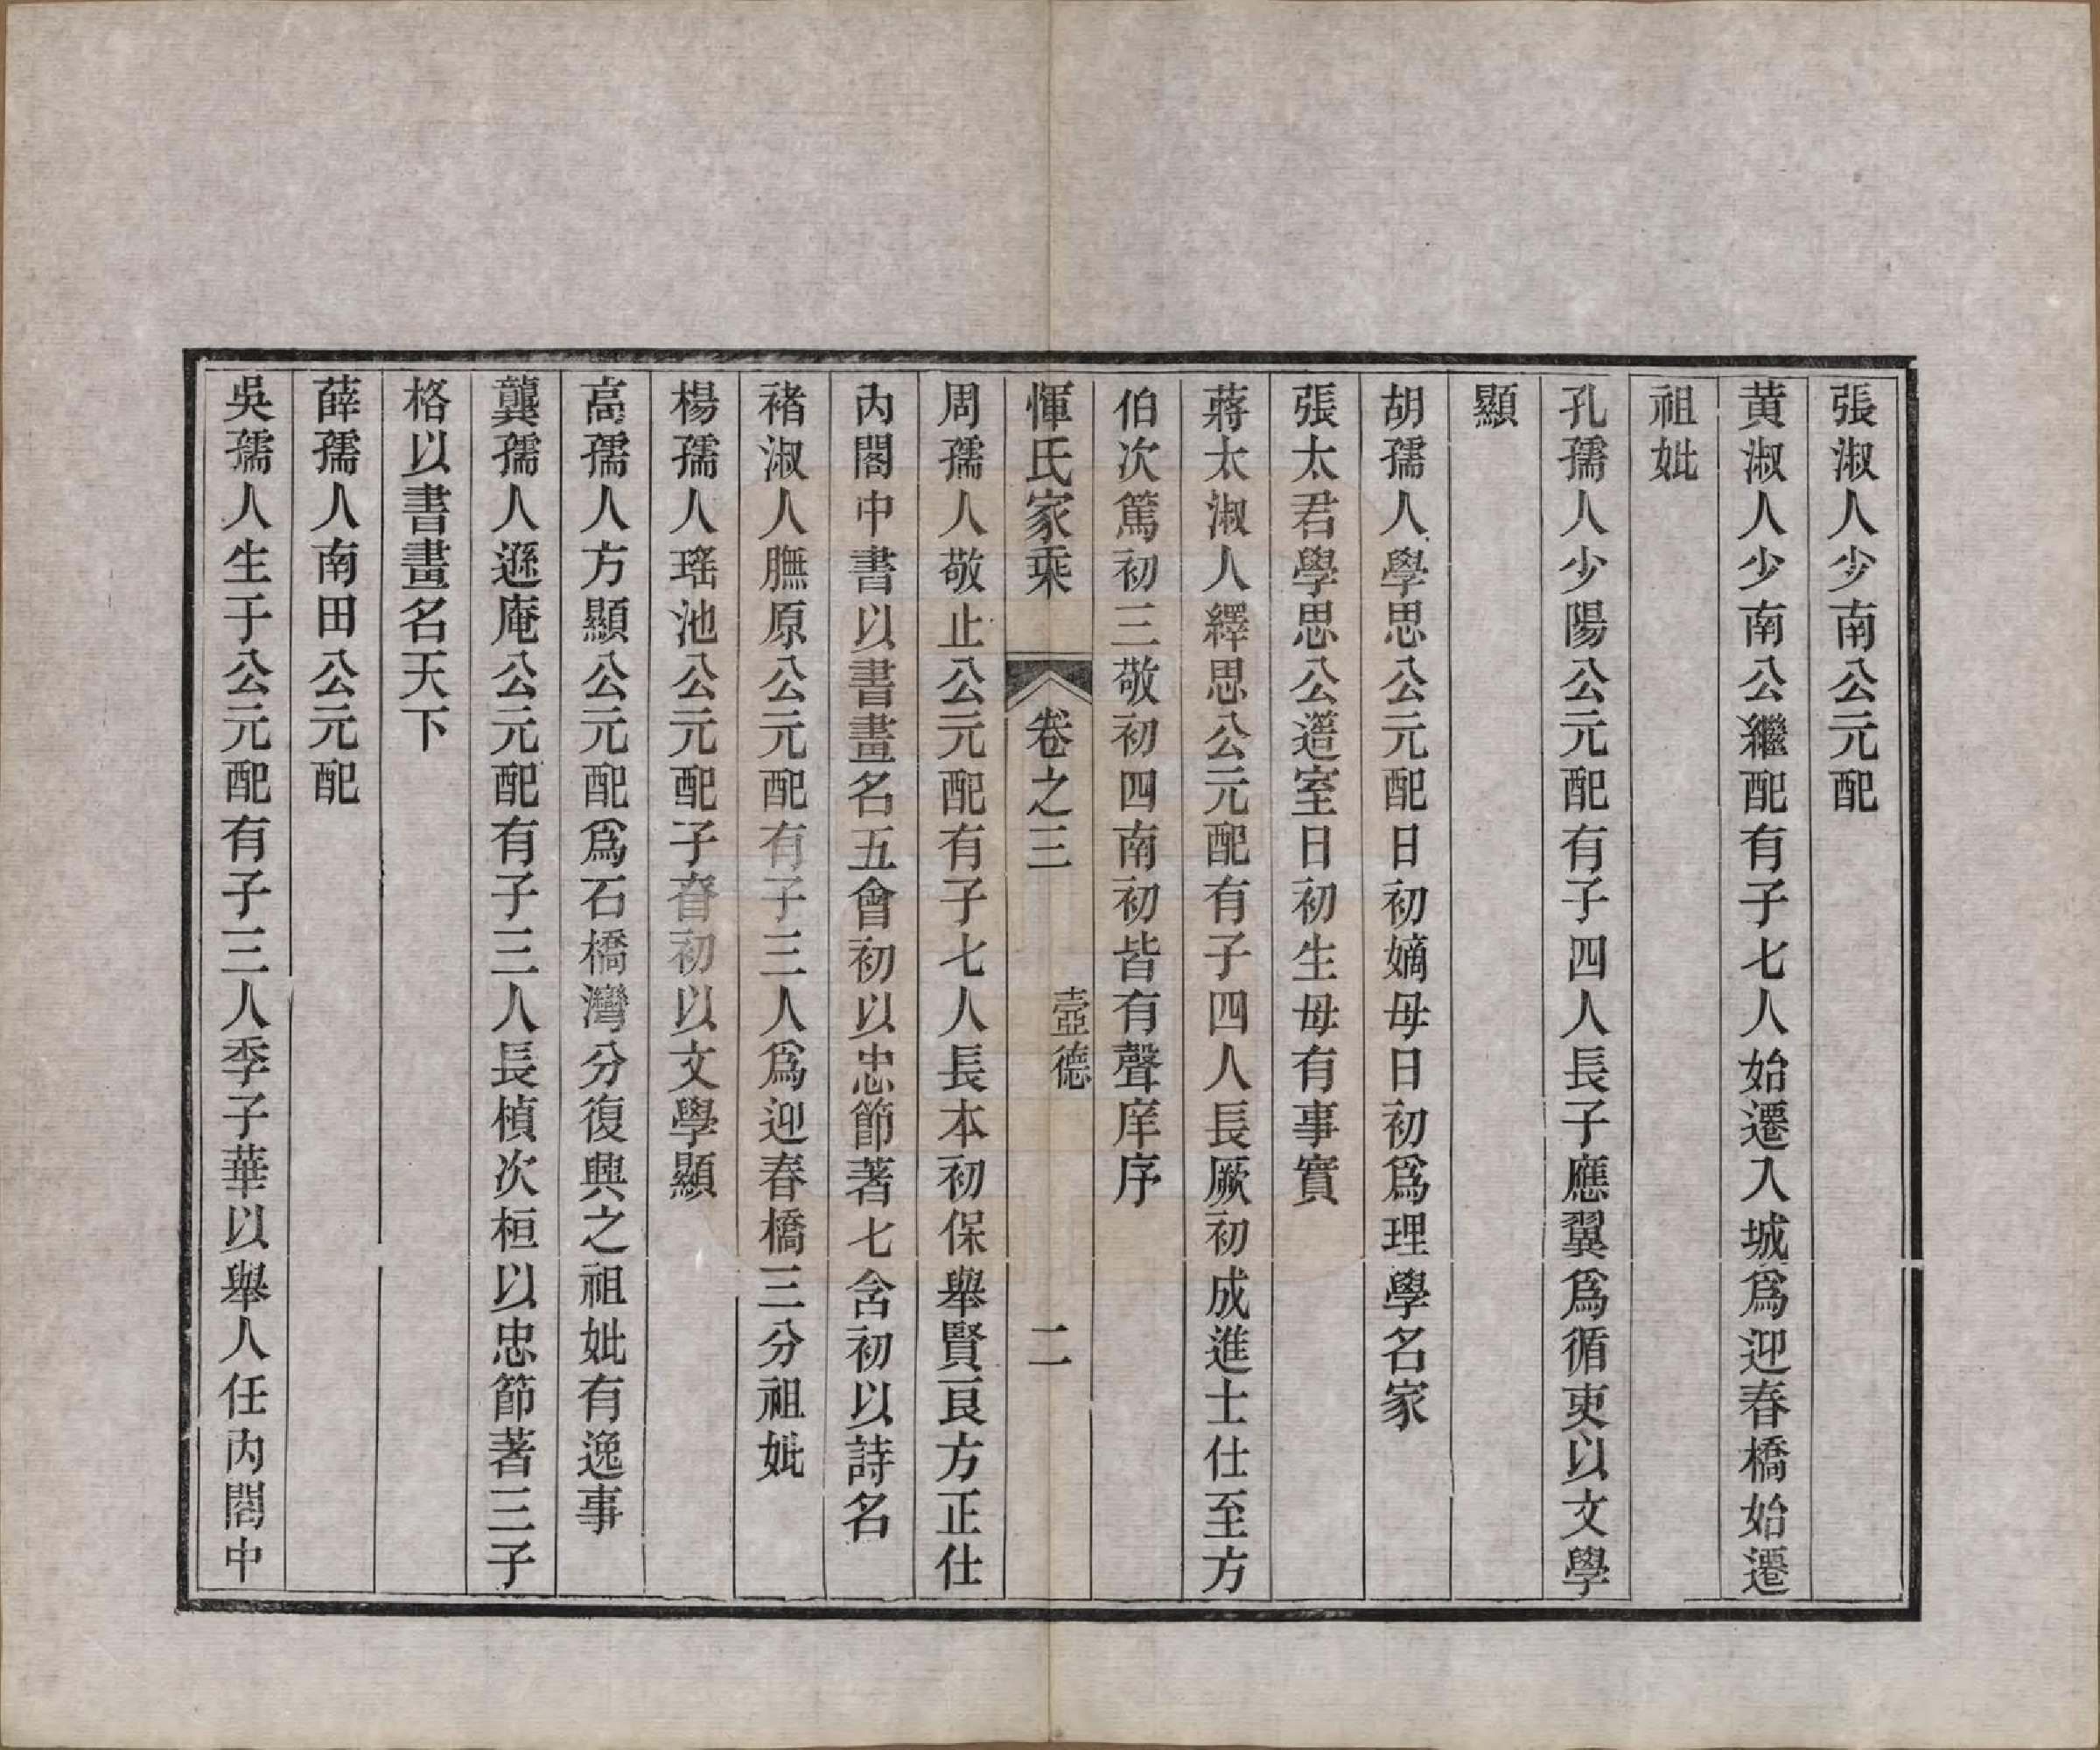 張淑人少南公元配
黄淑人少南公繼配有子七人始遷入城爲迎春橋始遷
祖妣
孔孺人少陽公元配有子四人長子應翼爲循吏以文學
顯
胡孺人學思公元配日初嫡母日初爲理學名家
張太君學思公簉室日初生母有事實
蔣太淑人繹思公元配有子四人長厥初成進士仕至方
伯次篤初三敬初四南初皆有聲庠序
惲氏家乘 卷之三 壼德 二
周孺人敬止公元配有子七人長本初保舉賢良方正仕
內閣中書以書畫名五會初以忠節著七含初以詩名
褚淑人膴原公元配有子三人爲迎春橋三分祖妣
楊孺人瑤池公元配子育初以文學顯
高孺人方顯公元配爲石橋灣分復興之祖妣有逸事
龔孺人遜庵公元配有子三人長楨次桓以忠節著三子
格以書畫名天下
薛孺人南田公元配
吳孺人生于公元配有子三人季子華以舉人任內閣中